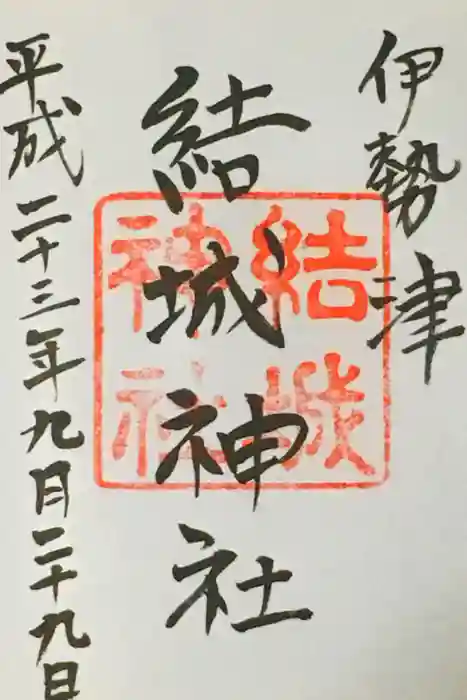 伊勢津
結城神社
結城
神社
平成二十三年九月二十九日